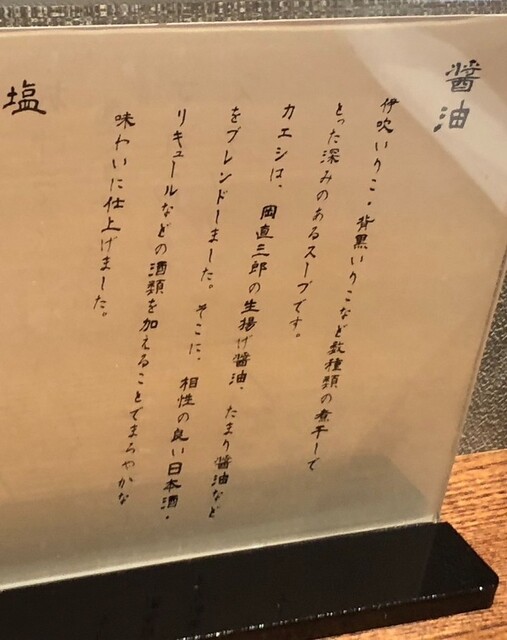 醤油
伊吹いりこ・背黒いりこなど数種類の煮干しで
とった深みのあるスープです。
カエシは、岡直三郎の生揚げ醤油、たまり醤油など
をブレンドしました。そこに、相性の良い日本酒・
リキュールなどの酒類を加えることでまろやかな
味わいに仕上げました。
塩